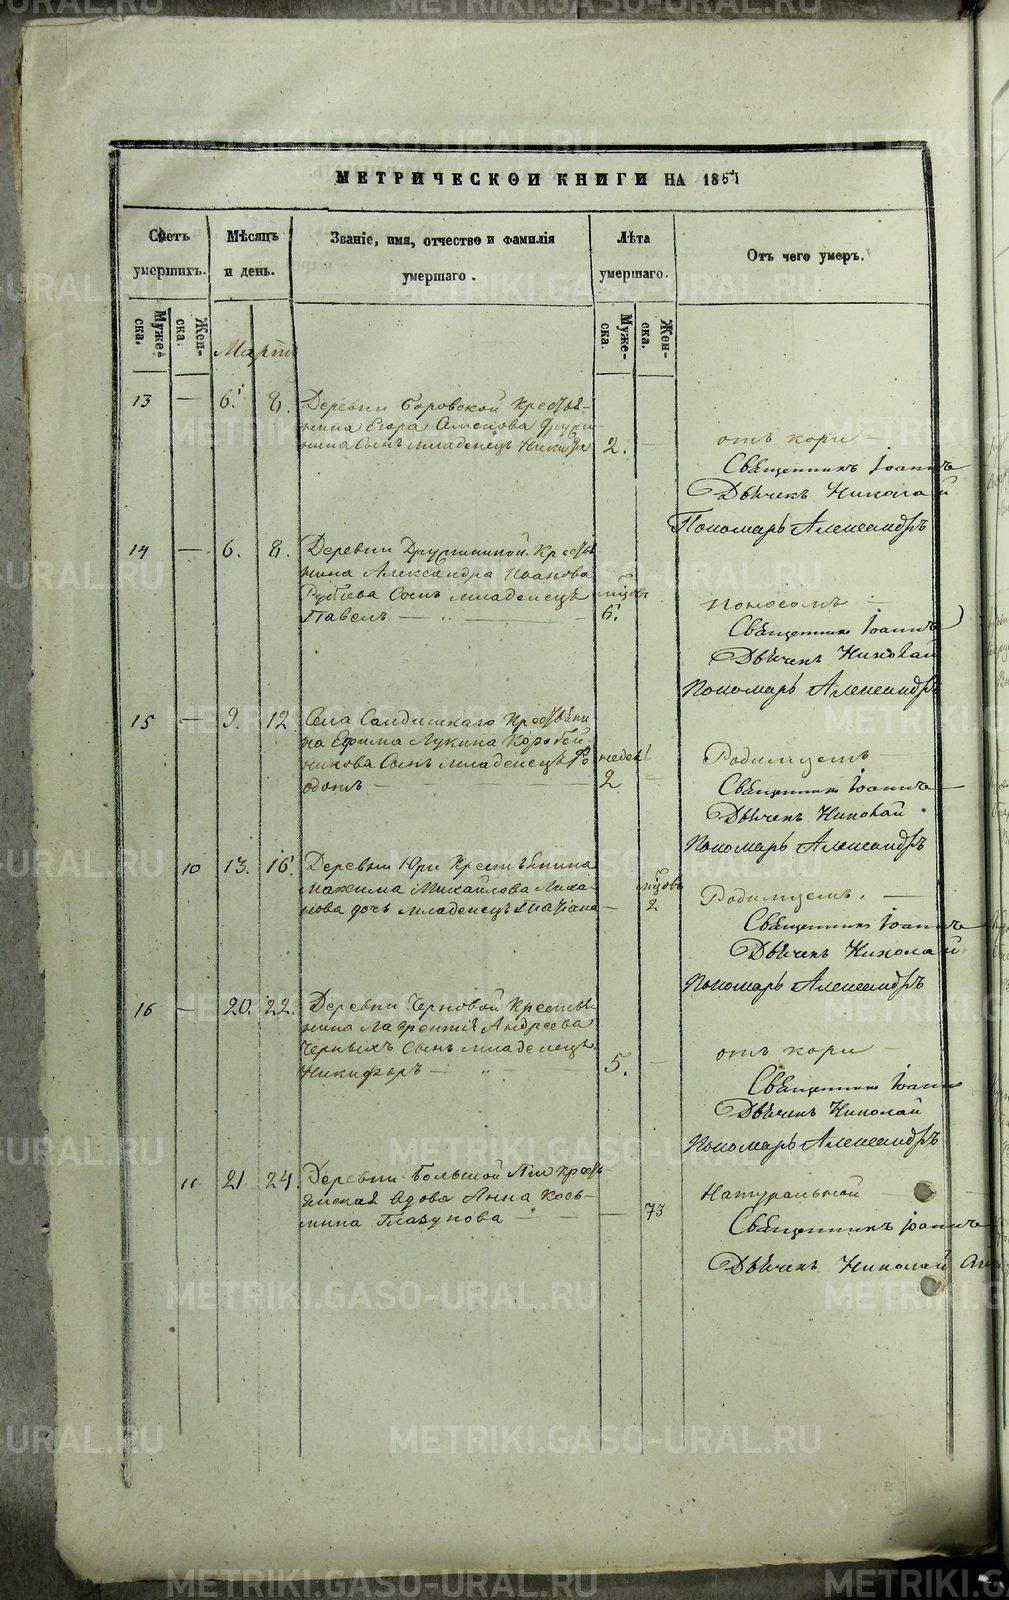 МЕТРИЧЕСКОЙ КНИГИ НА 1857
Счетъ умершихъ.
Мѣсяцъ и день.
Званіе, имя, отчество и фамилія умершаго.
Лѣта умершаго.
Отъ чего умеръ.
Муже-ска.
Жен-ска.
Муже-ска.
Жен-ска.
Мартъ
13 — 6. 8. Деревни Боровской Кресть-
нина Егора Семенова
нина Сынъ младенецъ 2. —
отъ кори —
Священникъ Іоаннъ
Дьячекъ Николай
Пономарь Александръ
14 — 6. 8. Деревни Дружининой Кресть-
нина Александра Иванова
Сынъ младенецъ мѣцовъ
Павелъ — „ — 6.
поносомъ —
Священникъ Іоаннъ
Дьячекъ Николай
Пономарь Александръ
15 — 9. 12 Села Крестьяни
на Ефима Лукина Коробей-
никова Сынъ младенецъ Ѳе недель
одотъ — 2 —
Родимцемъ —
Священникъ Іоаннъ
Дьячекъ Николай
Пономарь Александръ
10 13. 16. Деревни Юри Крестьянина
Максима Михайлова Лиха- мѣцовъ
нова дочь младенецъ Татіана — 2
Родимцемъ. —
Священникъ Іоаннъ
Дьячекъ Николай
Пономарь Александръ
16 — 20. 22. Деревни Черновой Крестья
нина Лаврентія Андреева
Черныхъ Сынъ младенецъ
Никифоръ — „ — 5. —
отъ кори —
Священникъ Іоаннъ
Дьячекъ Николай
Пономарь Александръ
11 21 24. Деревни Большой Кресть-
янская вдова Анна Козь-
мина Глазунова — — 73
Натуральной
Священникъ Іоаннъ
Дьячекъ Николай
METRIKI.GASO-URAL.RU